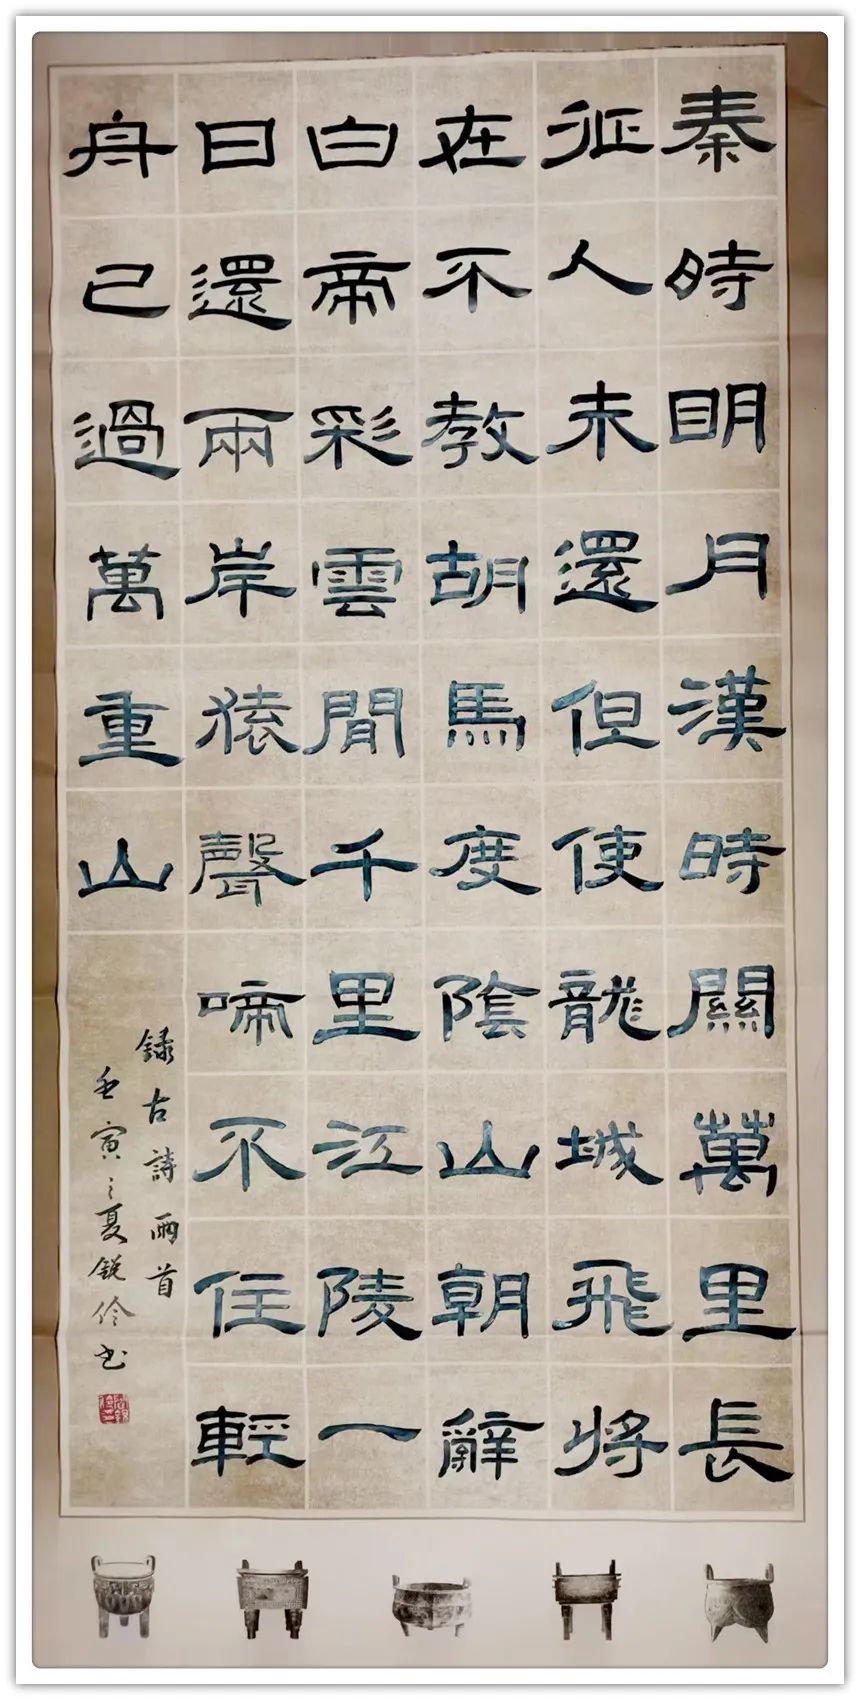 秦時眀月漢時關萬里長
征人未還但使龍城飛將
在不教胡馬度陰山朝辭
白帝彩雲閒千里江陵一
日還兩岸猿聲啼不住輕
舟已過萬重山
録古詩兩首
壬寅之夏鋭伶书